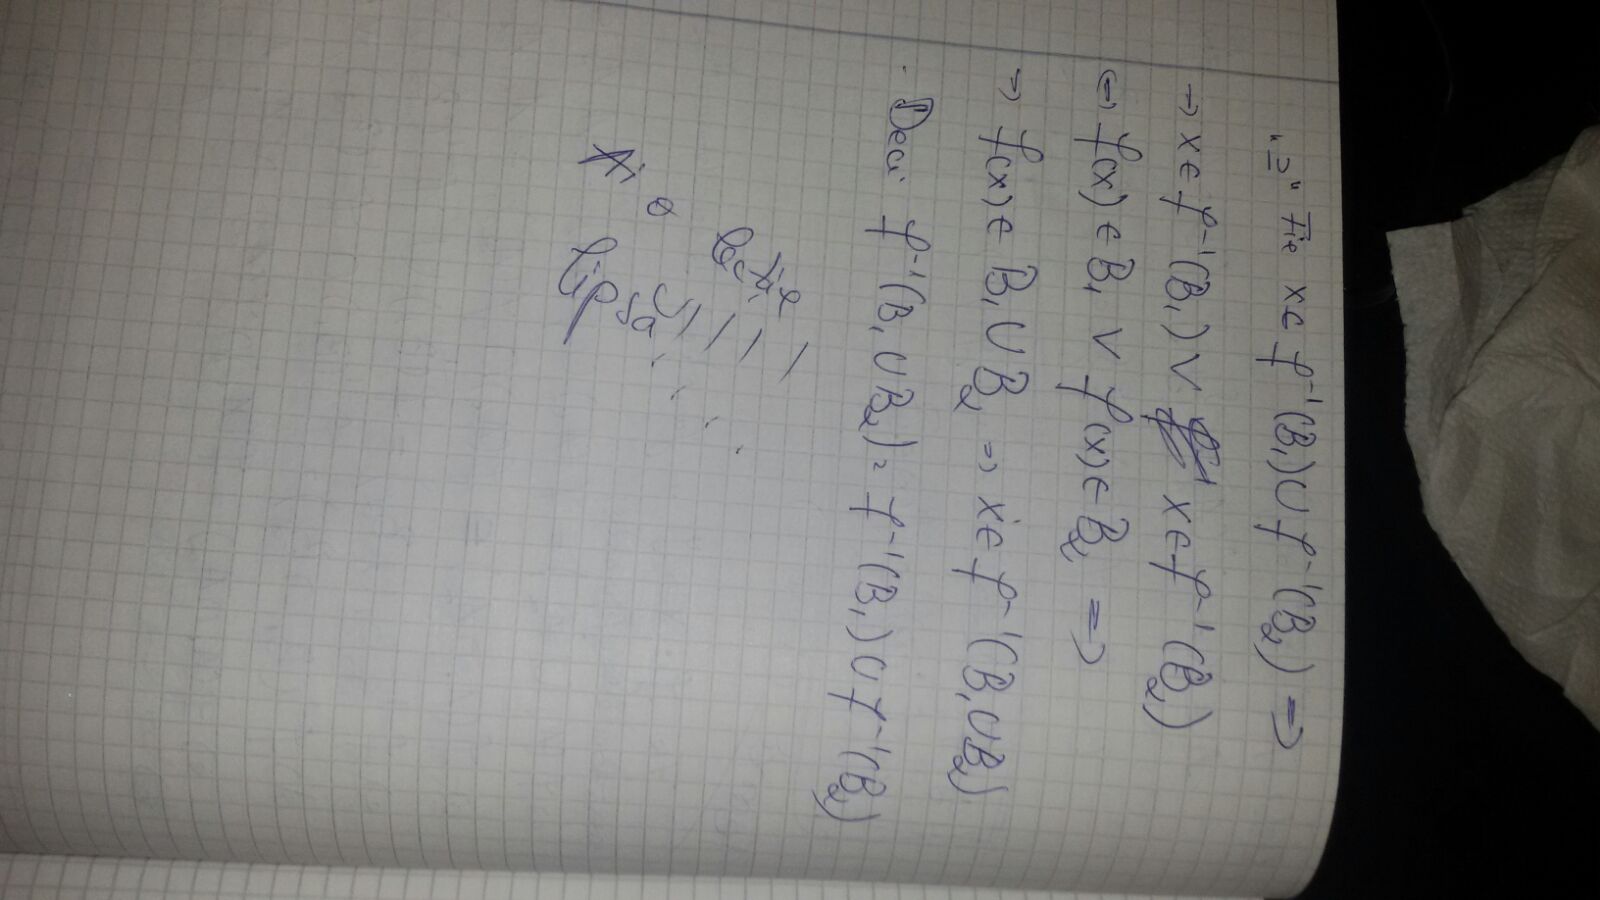 "⊇" Fie x∈f⁻¹(B₁)∪f⁻¹(B₂) ⇒
⇒ x∈f⁻¹(B₁) ∨ x∈f⁻¹(B₂)
⇔ f(x)∈B₁ ∨ f(x)∈B₂ ⇒
⇒ f(x)∈B₁∪B₂ ⇒ x∈f⁻¹(B₁∪B₂)
Deci f⁻¹(B₁∪B₂) = f⁻¹(B₁)∪f⁻¹(B₂)
o lecție
lipsă!!!!